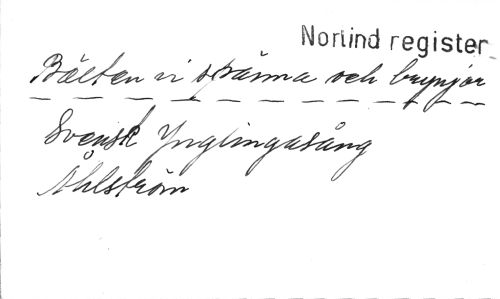 Norlind register
Bälten vi spänna och brynjor
Svensk Ynglingasång
Åhlström